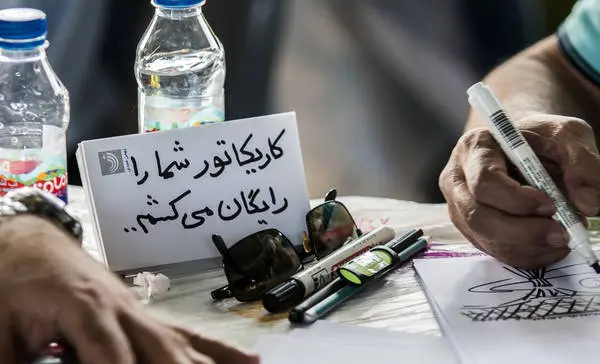 کاریکاتور شما را
رایگان می‌کشم..